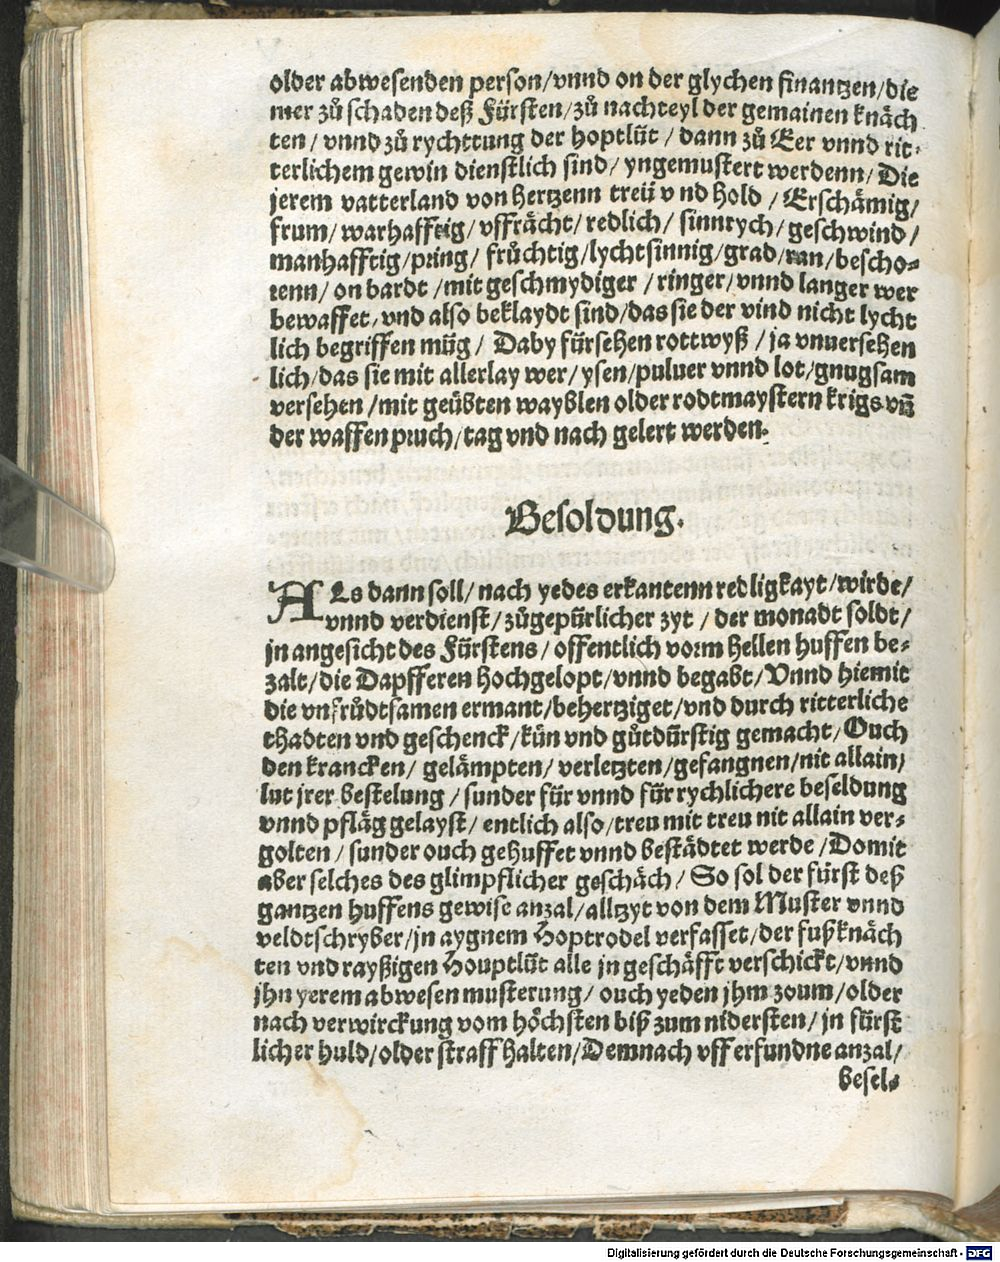 older abwesenden person/vnnd on der glychen finantzen/die
mer zů schaden deß Fürsten/zů nachteyl der gemainen knäch
ten/vnnd zů rychttung der hoptlüt/dann zů Eer vnnd rit-
terlichem gewin dienstlich sind/yngemustert werdenn/Die
jerem vatterland von hertzenn treü vnd hold/Erschämig/
frum/warhafftig/vffrächt/redlich/sinnrych/geschwind/
manhafftig/pring/früchtig/lychtsinnig/grad/ran/bescho-
renn/on bardt/mit geschmydiger/ringer/vnnd langer wer
bewaffet/vnd also beklaydt sind/das sie der vind nicht lycht
lich begriffen müg/Daby fürsehen rottwyß/ja vnuersehen
lich/das sie mit allerlay wer/ysen/puluer vnnd lot/gnugsam
versehen/mit geübten wayblen older rodtmaystern krigs vñ
der waffen pruch/tag vnd nach gelert werden.
Besoldung.
ALs dann soll/nach yedes erkantenn redligkayt/wirde/
vnnd verdienst/zůgepürlicher zyt/der monadt soldt/
jn angesicht des Fürstens/offentlich vorm hellen huffen be-
zalt/die Dapfferen hochgelopt/vnnd begabt/Vnnd hiemit
die vnfrůdtsamen ermant/behertziget/vnd durch ritterliche
thadten vnd geschenck/kün vnd gůtdürstig gemacht/Ouch
den krancken/gelämpten/verletzten/gefangnen/nit allain/
lut jrer bestelung/sunder für vnnd für rychlichere beseldung
vnnd pfläg gelayst/entlich also/treu mit treu nit allain ver-
golten/sunder ouch gehuffet vnnd bestädtet werde/Domit
aber selches des glimpflicher geschäch/So sol der fürst deß
gantzen huffens gewise anzal/alltzyt von dem Muster vnnd
veldtschryber/jn aygnem Hoptrodel verfasset/der fußknäch
ten vnd rayßigen Houptlüt alle jn geschäfft verschickt/vnnd
jhn yerem abwesen musterung/ouch yeden jhm zoum/older
nach verwirckung vom höchsten biß zum nidersten/jn fürst
licher huld/older straff halten/Demnach vff erfundne anzal/
besel-
Digitalisierung gefördert durch die Deutsche Forschungsgemeinschaft - DFG